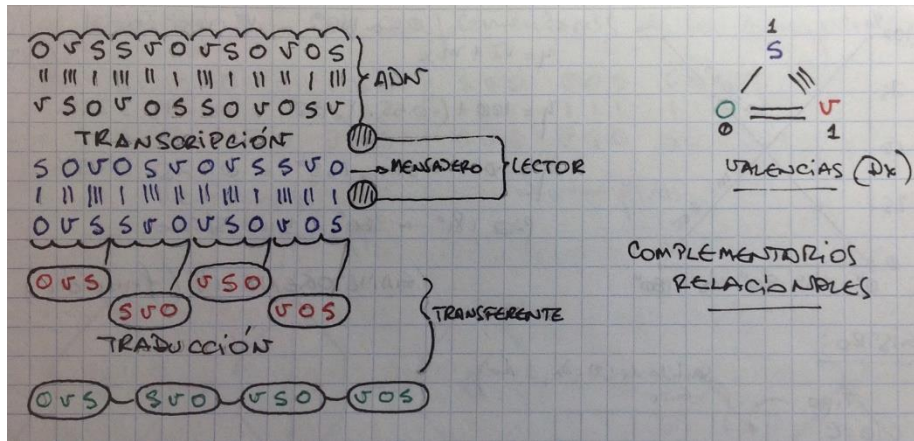 O V S S V O V S O V O S
ADN
V S O V O S S O V O S V
TRANSCRIPCIÓN
S O V O S V O V S S V O → MENSAJERO
LECTOR
O V S S V O V S O V O S
O V S
S V O
V S O
V O S
TRANSFERENTE
TRADUCCIÓN
O V S
S V O
V S O
V O S
1
S
O V
0 1
VALENCIAS (Dx)
COMPLEMENTARIOS
RELACIONALES